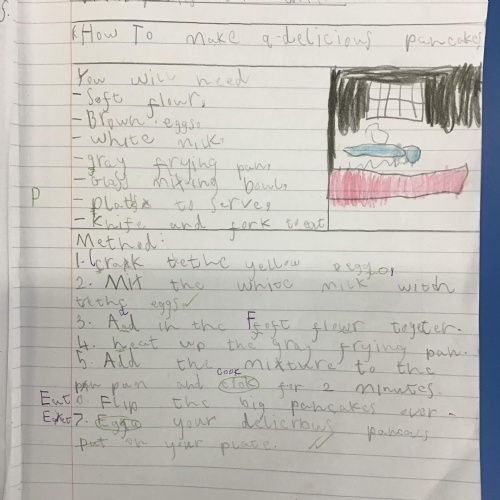 How To make a delicious pancakes
You will need
- Soft flour,
- Brown eggs.
- white milk.
- gray frying pan.
- Glass mixing bowl,
- plates to serve,
- Knife and fork to eat
P
Method:
1. Crack the yellow eggs,
2. Mit the white milk with
the eggs ✓
3. Add in the Fsoft flour togeter.
4. heat up the gray frying pan.
cook
5. Add the mixture to the
pan and for 2 minutes.
6. Flip the big pancakes over.
7. your delicious pancakes
put on your plate. ✓